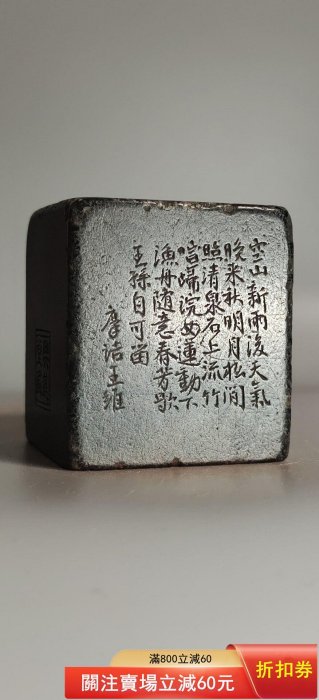 空山新雨後天氣
晚来秋明月松间
照清泉石上流竹
喧歸浣女蓮動下
漁舟随意春芳歇
王孫自可留
摩诘王维
滿800立減60
關注賣場立減60元
折扣券